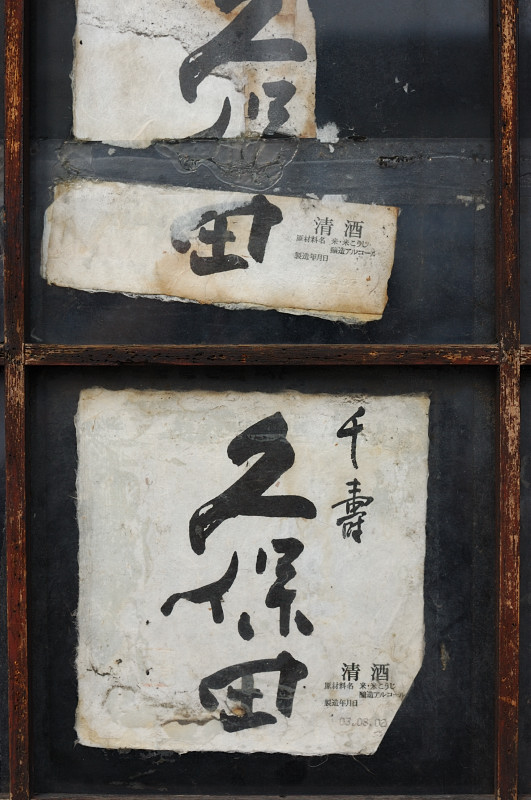 久保田
清酒
原材料名 米・米こうじ
醸造アルコール
製造年月日
千壽
久保田
清酒
原材料名 米・米こうじ
醸造アルコール
製造年月日
03.08.02